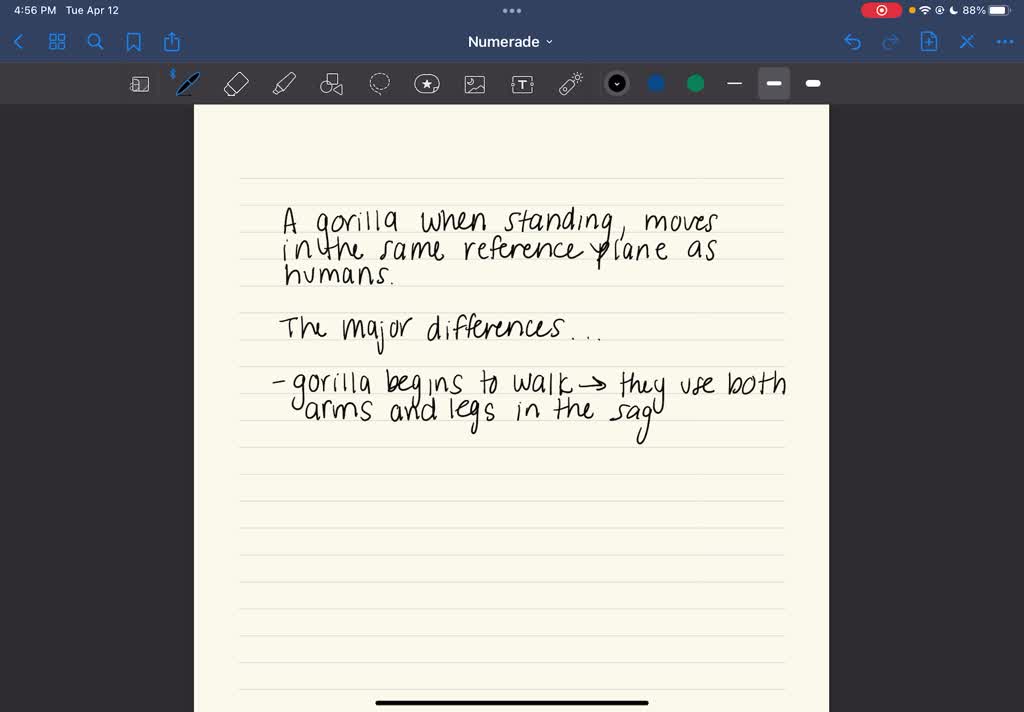 4:56 PM Tue Apr 12
88%
Numerade
T
A gorilla when standing, moves
in the same reference plane as
humans.
The major differences...
- gorilla begins to walk → they use both
arms and legs in the sag